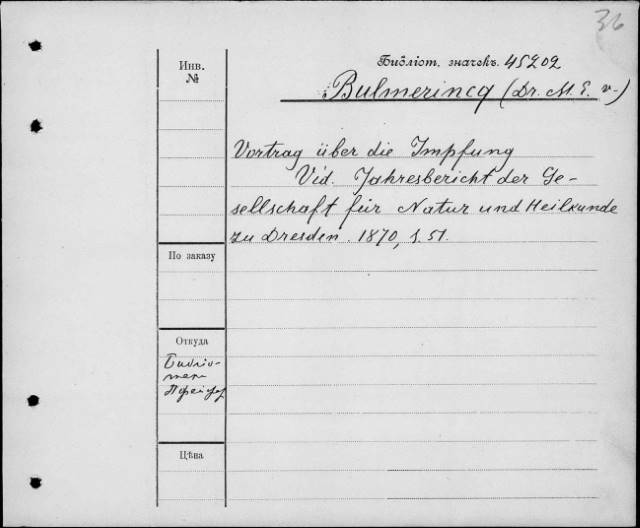 36
Инв.
№
Библіот. значекъ. 45202
Bulmerincq (Dr. M. E. v.)
Vortrag über die Impfung
Vid. Jahresbericht der Ge-
sellschaft für Natur und Heilkunde
zu Dresden. 1870, S. 51.
По заказу
Откуда
Библіо-
тек
Пфейфер
Цѣна